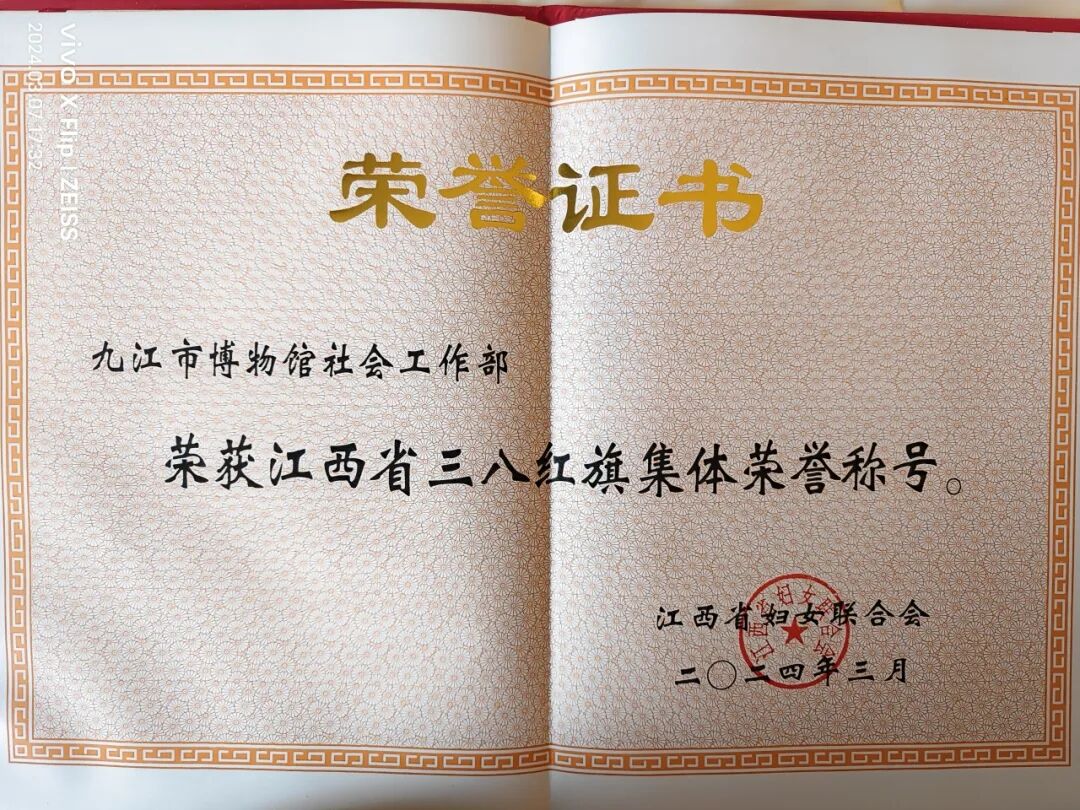 荣誉证书
九江市博物馆社会工作部
荣获江西省三八红旗集体荣誉称号。
江西省妇女联合会
二〇二四年三月
江西省妇女联合会
vivo X Flip | ZEISS
2024.03.07 17:32